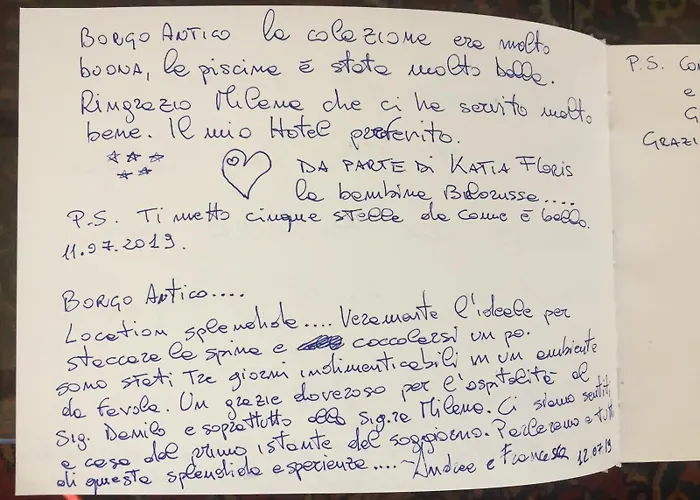 BORGO ANTICO la colazione era molto
buona, la piscina è stata molto bella.
Ringrazio Milena che ci ha servito molto
bene. Il mio Hotel preferito.
DA PARTE DI KATIA Floris
la bambina Bielorussa....
P.S. Ti metto cinque stelle da come è bello.
11.07.2019.
BORGO ANTICO....
Location splendida.... Veramente l'ideale per
staccare la spina e coccolarsi un po.
sono stati tre giorni indimenticabili in un ambiente
da favola. Un grazie doveroso per l'ospitalità al
Sig. Danilo e soprattutto alla sig.ra Milena. Ci siamo sentiti
a casa dal primo istante del soggiorno. Parleremo a tutti
di questa splendida esperienza.... ~Andrea e Francesca 12.07.19
P.S. Con
e
G
GRAZI